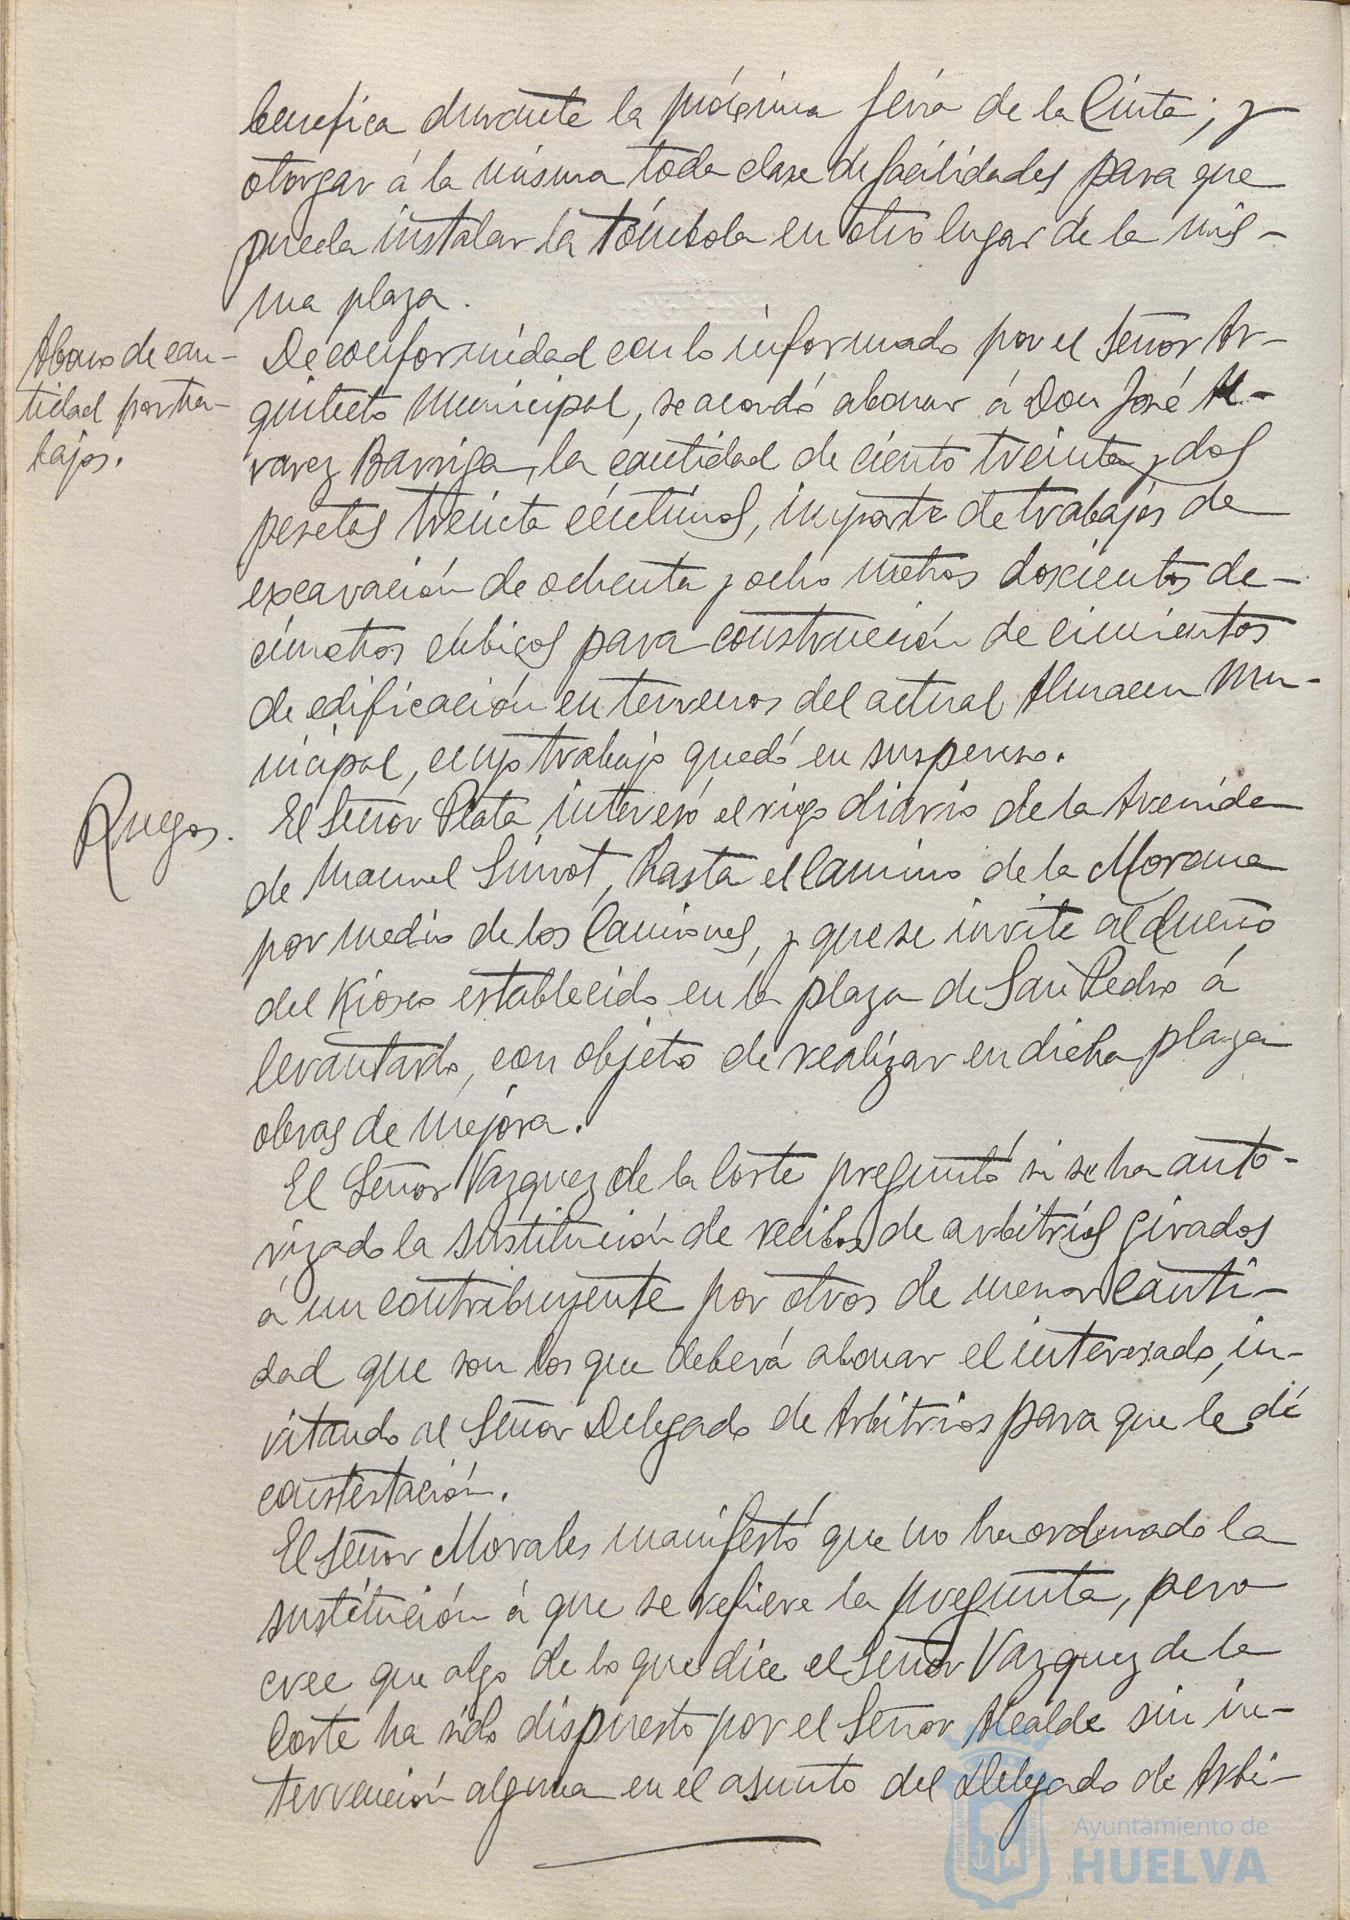 benéfica durante la próxima feria de la Cinta; y
otorgar á la misma toda clase de facilidades para que
pueda instalar la tómbola en otro lugar de la mis-
ma plaza.
Abono de can-
tidad por tra-
bajos.
De conformidad con lo informado por el Señor Ar-
quitecto Municipal, se acordó abonar á Don José Al-
varez Barriga, la cantidad de ciento treinta y dos
pesetas treinta céntimos, importe de trabajos de
excavación de ochenta y ocho metros doscientos de-
címetros cúbicos para construcción de cimientos
de edificación en terrenos del actual Almacen Mu-
nicipal, cuyo trabajo quedó en suspenso.
Ruegos.
El Señor Plata interesó el riego diario de la Avenida
de Manuel Siurot, hasta el Camino de la Morana
por medio de los Camiones, y que se invite al dueño
del Kiosco establecido en la plaza de San Pedro á
levantarlo, con objeto de realizar en dicha plaza
obras de mejora.
El Señor Vazquez de la Corte preguntó si se ha auto-
rizado la sustitución de recibos de arbitrios girados
á un contribuyente por otros de menor canti-
dad que son los que deberá abonar el interesado, in-
vitando al Señor Delegado de Arbitrios para que le dé
constestación.
El Señor Morales manifestó que no ha ordenado la
sustitución á que se refiere la pregunta, pero
cree que algo de lo que dice el Señor Vazquez de la
Corte ha sido dispuesto por el Señor Alcalde sin in-
tervención alguna en el asunto del Delegado de Arbi-
Ayuntamiento de
HUELVA